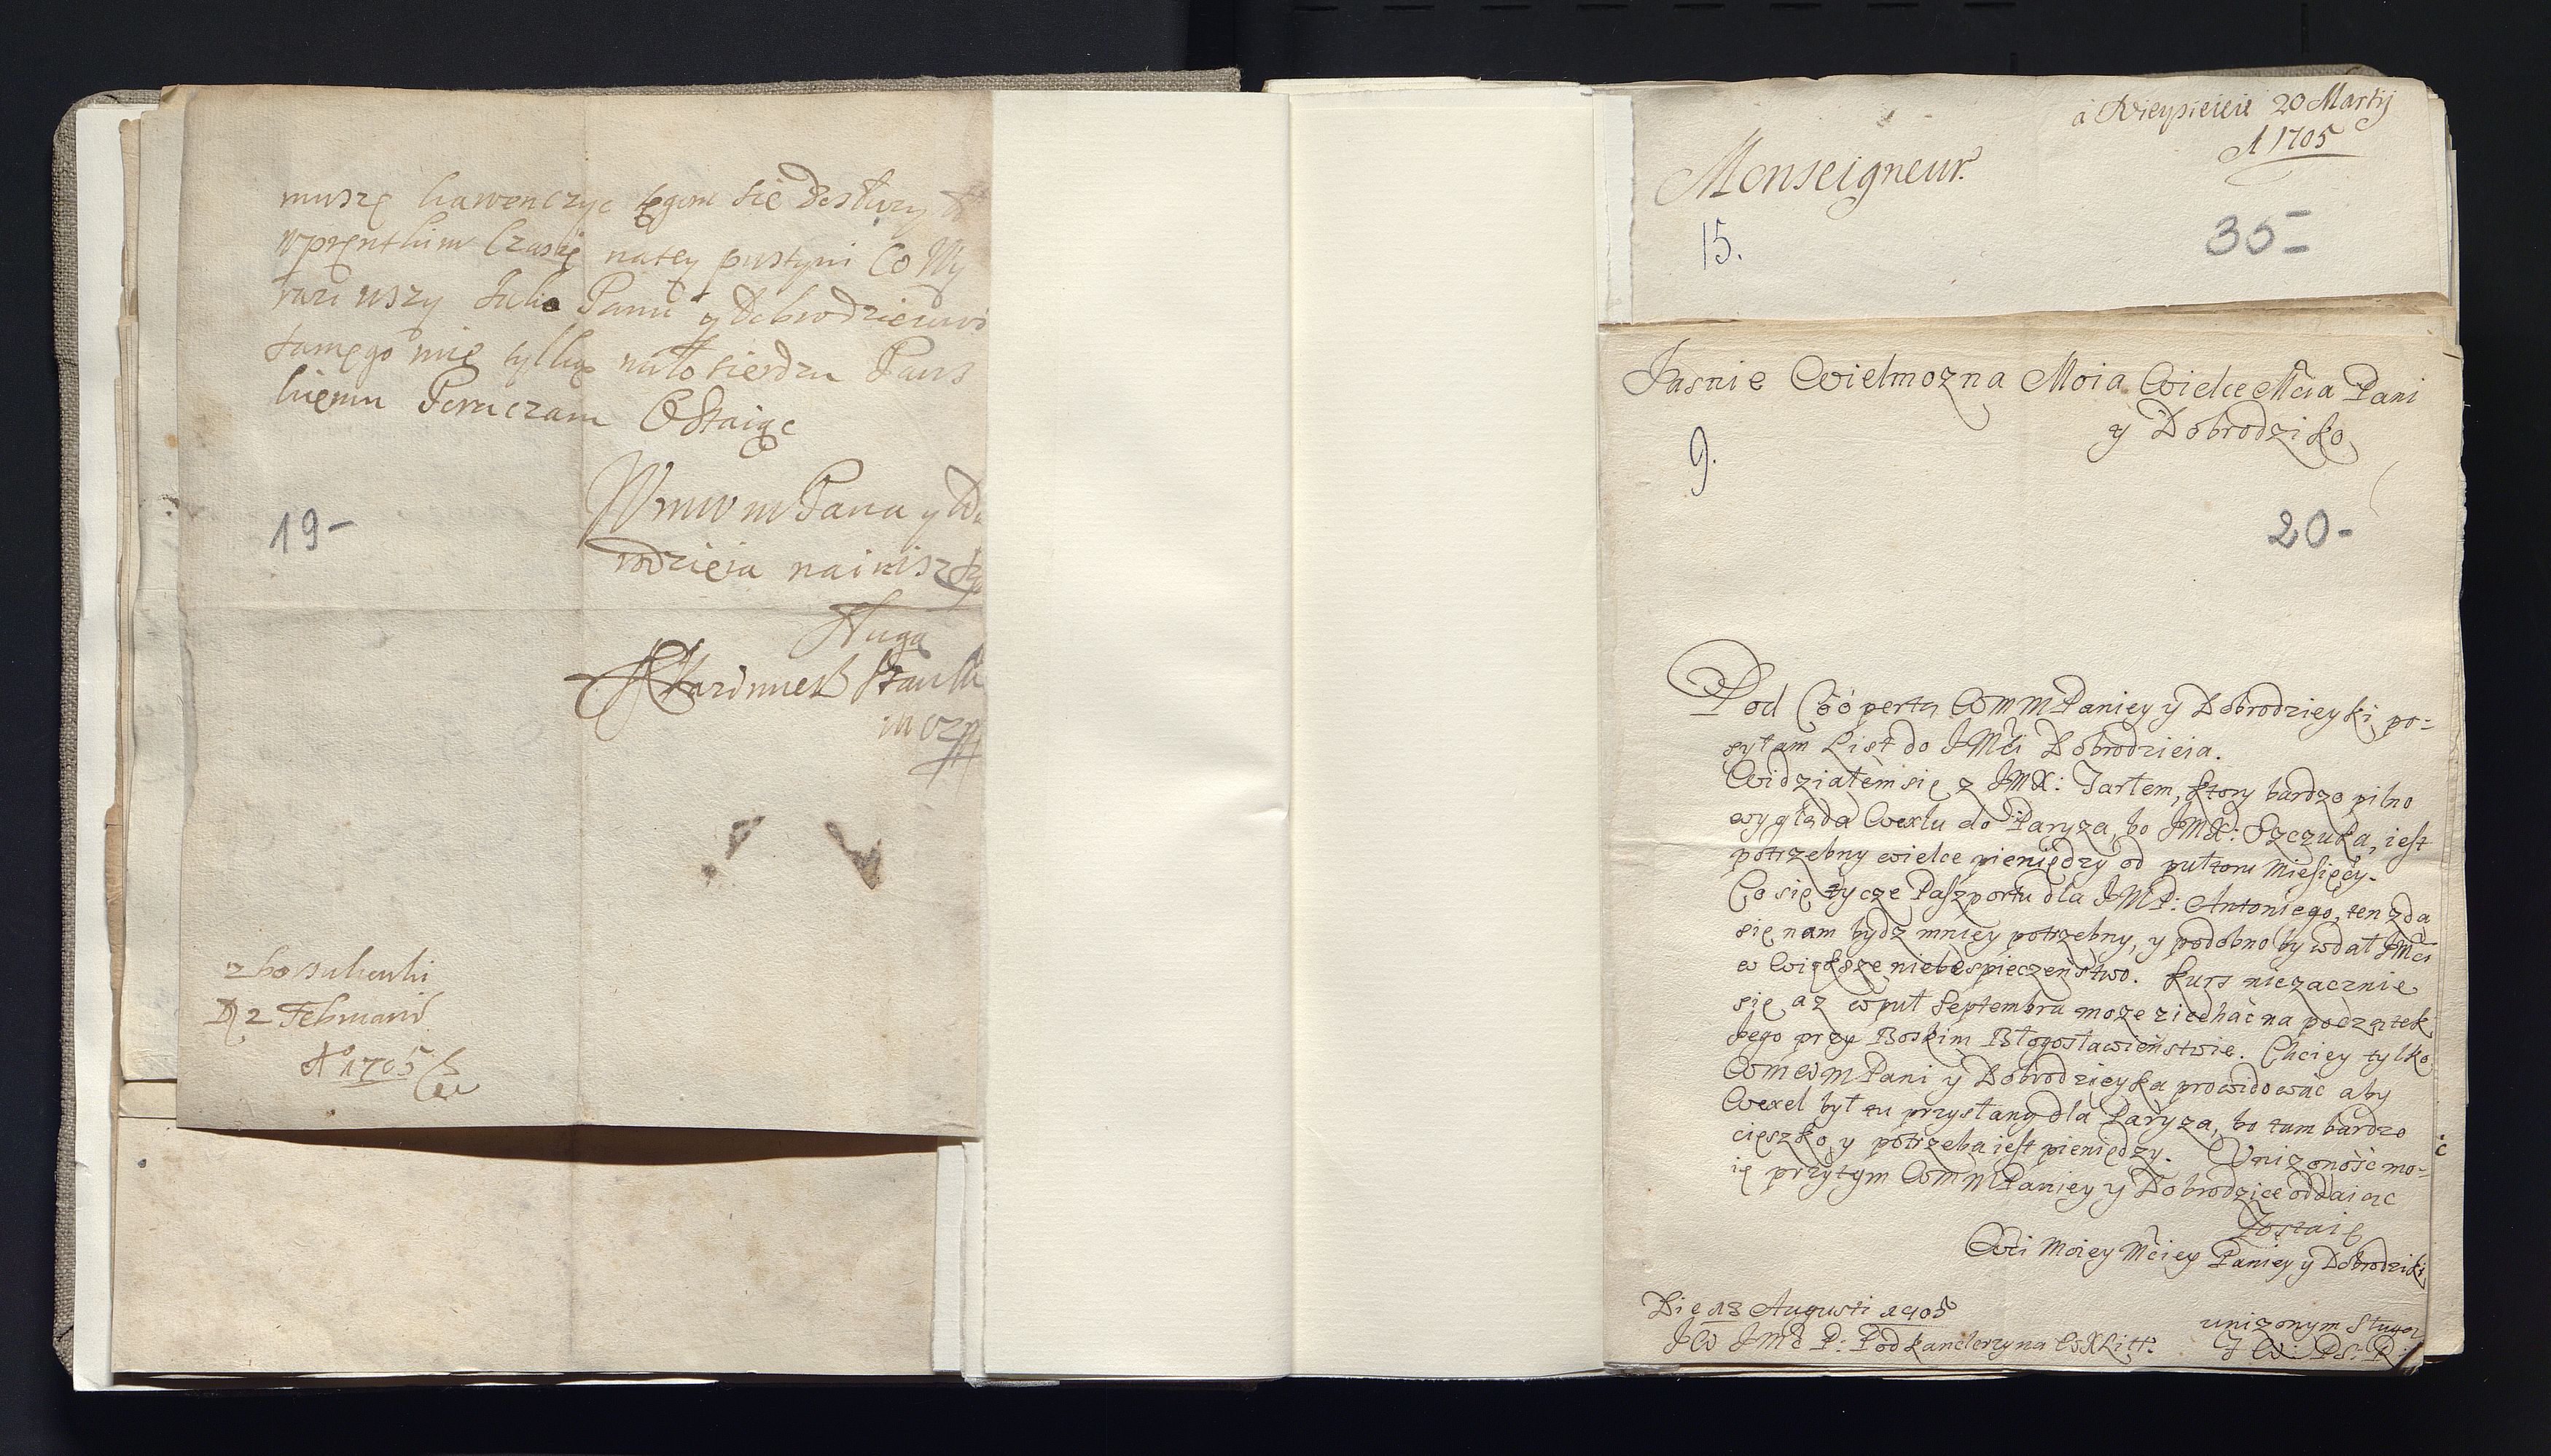 muszę
czasię natey pustyni Co Wy
Panu y Dobrodzieiowi
samęgo mię tylko miłosierdzu Pans
kięmu Poruczam Ostaiąc
WmwmPana y Do
rodzieia nainiszszy
sługa
19-
D 2 Februarii
A° 1705
à 20 Martij
A 1705
Monseigneur.
15.
35-
Jasnie Wielmozna Moia Wielce Mcia Pani
y Dobrodziko
9.
20-
Pod Cooperta WMMPaniey y Dobrodzieyki po-
syłam List do JMci Dobrodzieia.
Widziałem się z JMX: Jartem, ktory bardzo pilno
wygląda Wexlu do Paryza, bo JMX: Szczuka, iest
potrzebny wielce pieniędzy od pułtoru Miesięcy.
Co się tycze Paszportu dla JMP: Antoniego, ten zda
się nam bydz mniey potrzebny, y podobno by wdał JMci
w Większe niebespieczeństwo. Kurs niezacznie
się az w puł Septembra moze ziechać na początek
iego przy Boskim Błogosławieństwie. Chciey tylko
WMWMPani y Dobrodzieyka prowidować aby
Wexel był tu przysłany dla Paryza, bo tam bardzo
cięszko, y potrzeba iest pieniędzy. Unizoność mo-
ię przytym WMMPaniey y Dobrodzice oddaiąc
Zostaię
WMci Moiey Mciey Paniey y Dobrodziki
unizonym sługą
Die 18 Augusti 1705
JW JMC P: Podkanclerzyna WXLitt: